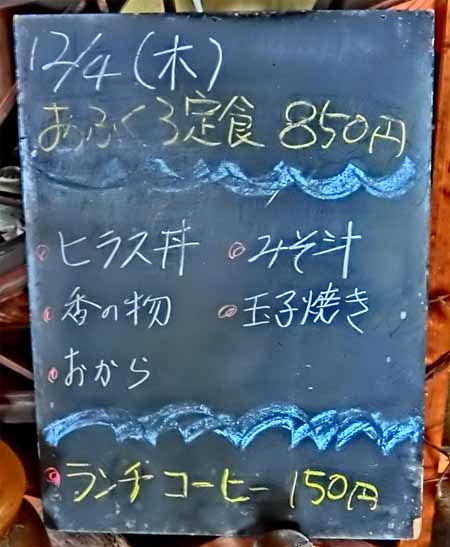 12/4(木)
おふくろ定食 850円
ヒラス丼 みそ汁
香の物 玉子焼き
おから
ランチコーヒー 150円